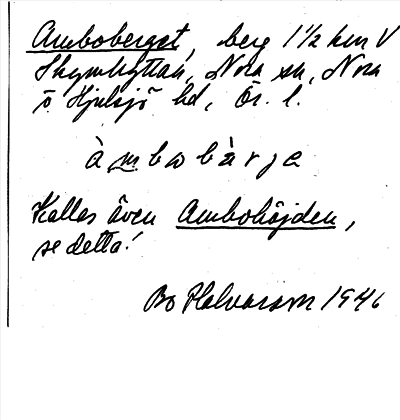 Amboberget, berg 1 1/2 km V
Skymhyttan, Nora sn, Nora
o. Hjulsjö bd, Ör. l.
à m b o b à r j e
Kallas även Ambohöjden,
se detta!
Bo Halvarson 1946